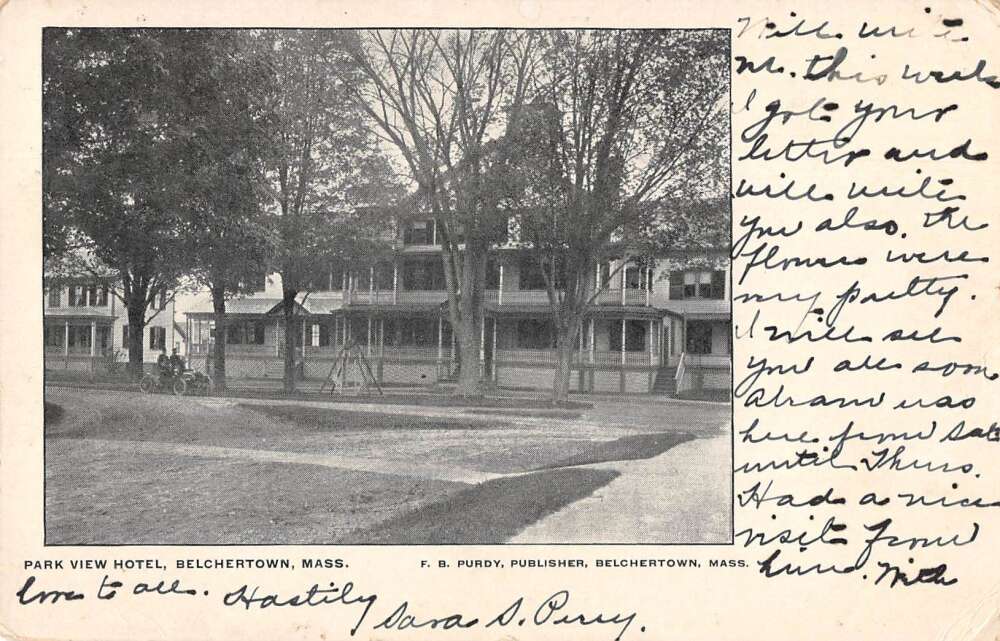 Will write
me this week
I got your
letter and
will write
you also. The
flowers were
very pretty.
I will see
you all soon
was
here from Sat
until Thurs.
Had a nice
visit from
him. With
PARK VIEW HOTEL, BELCHERTOWN, MASS.
F. B. PURDY, PUBLISHER, BELCHERTOWN, MASS.
love to all. Hastily
Sara S. Perry.